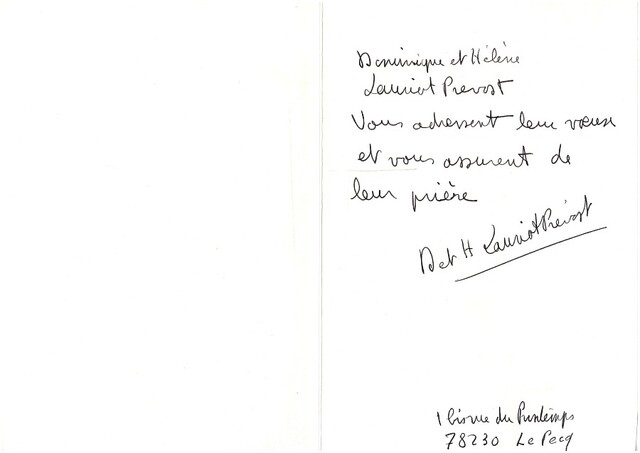 Dominique et Hélène
Lauriot Prevost
Vous adressent leur vœux
et vous assurent de
leur prière
D et H Lauriot Prévost
1 bis rue du Printemps
78230 Le Pecq